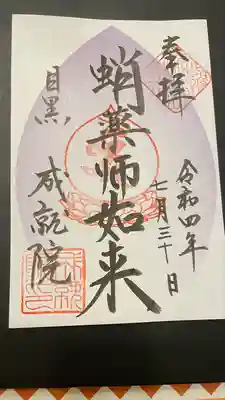 奉拝
令和四年
七月三十日
蛸薬師如来
目黒 成就院